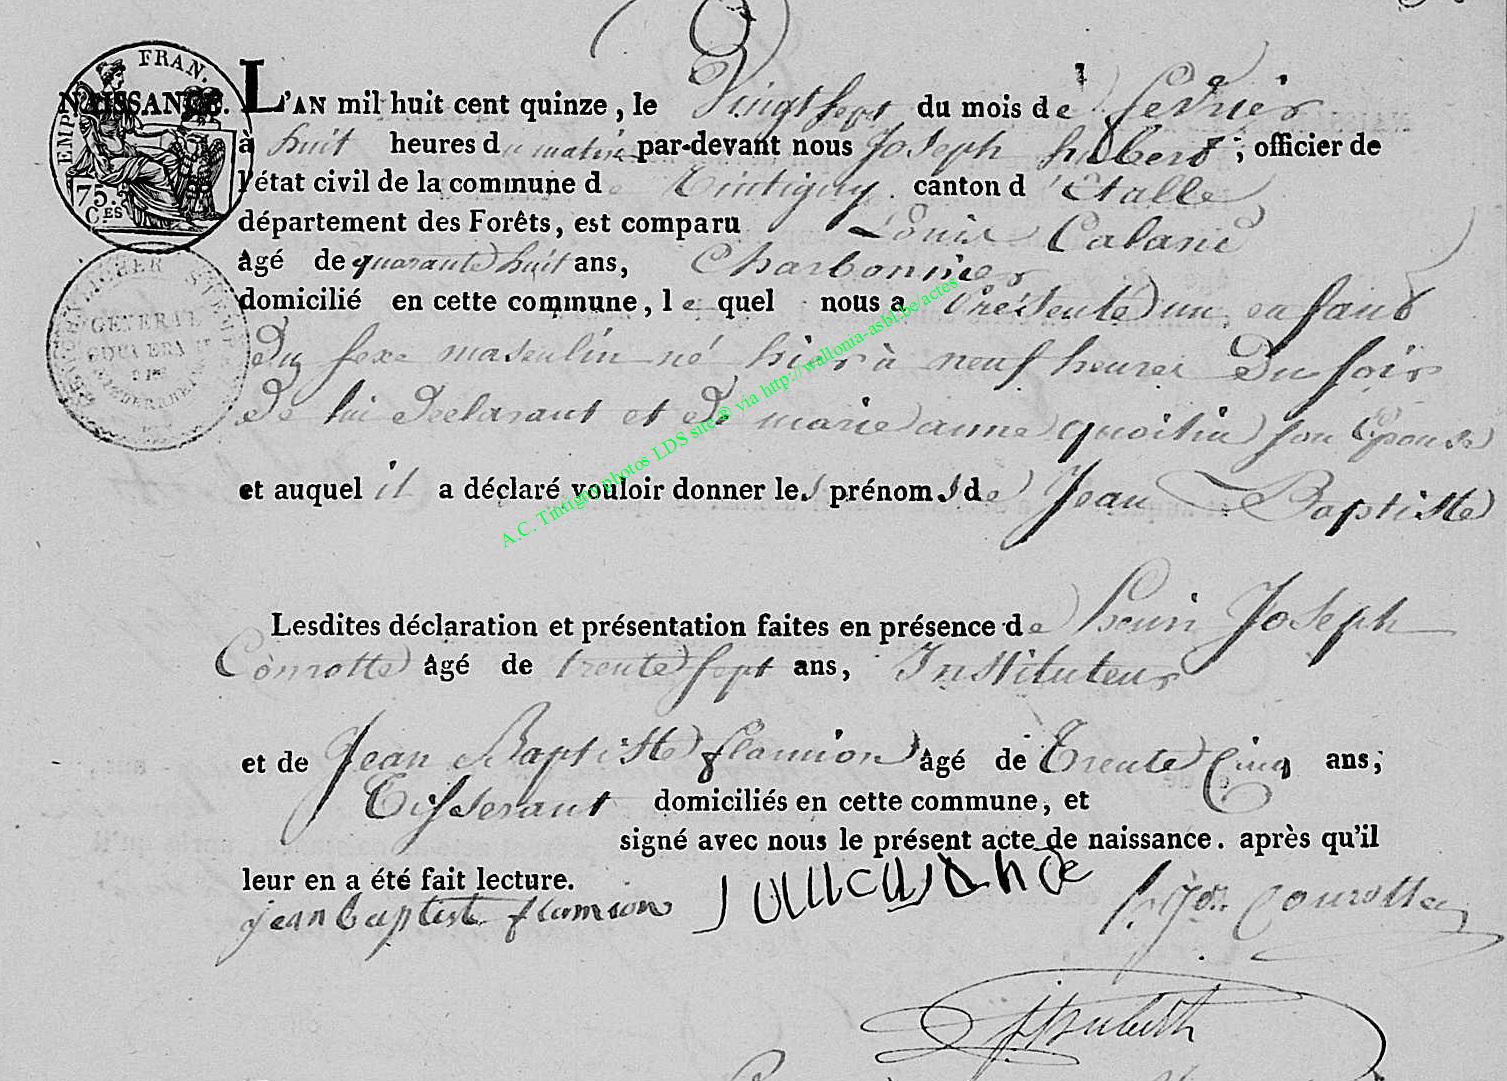 EMP. FRAN.
75.
C.ES
NAISSANCE.
GENERAL
GOUVERNT
L'AN mil huit cent quinze, le Vingt sept du mois de fevrier
à huit heures du matin par-devant nous Joseph hubert, officier de
l'état civil de la commune de Tintigny canton d'Etalle
département des Forêts, est comparu Louis Calané
âgé de quarante huit ans, Charbonnier
domicilié en cette commune, le quel nous a présenté un enfant
du sexe masculin né hier à neuf heures du soir
de lui declarant et de marie anne quoitin son Epouse
et auquel il a déclaré vouloir donner les prénoms de Jean Baptiste
Lesdites déclaration et présentation faites en présence de henri Joseph
Conrotte âgé de trente sept ans, Instituteur
et de Jean Baptiste flamion âgé de trente Cinq ans;
Tisserant domiciliés en cette commune, et
signé avec nous le présent acte de naissance. après qu'il
leur en a été fait lecture.
jean baptist flamion
h. Jos. Conrotte
JHubert
A.C. Tintigny photos LDS site @ via http://wallonia-asbl.be/actes